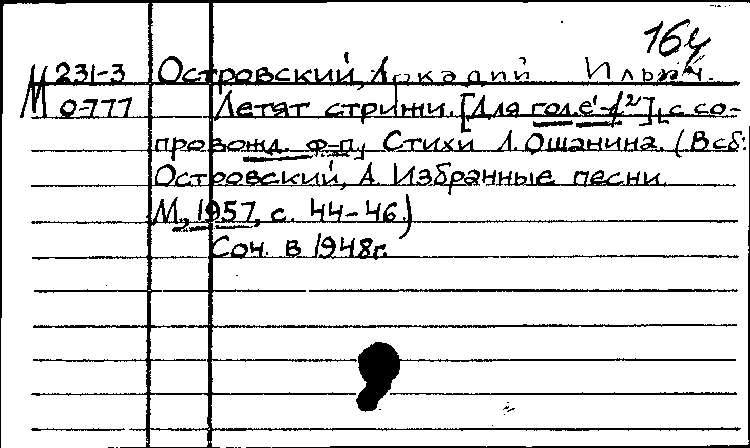 164
М 231-3 Островский, Аркадий Ильич.
М 0-777 Летят стрижи. [Для гол. e'-f²], с со-
провожд. ф-п., Стихи Л. Ошанина. (В сб:
Островский, А. Избранные песни.
М., 1957, с. 44-46.)
Соч. в 1948г.